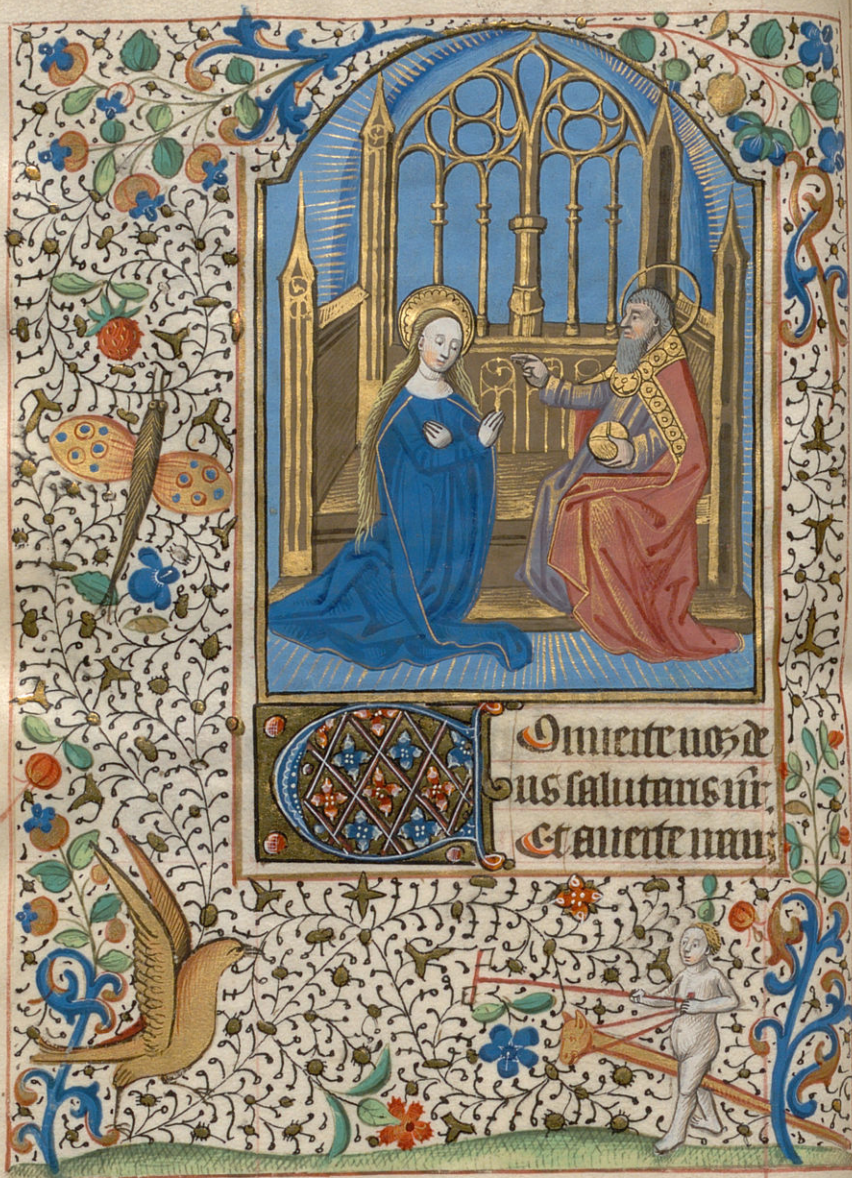 COnuerte nos de
us salutaris nr̄.
Et auerte iram